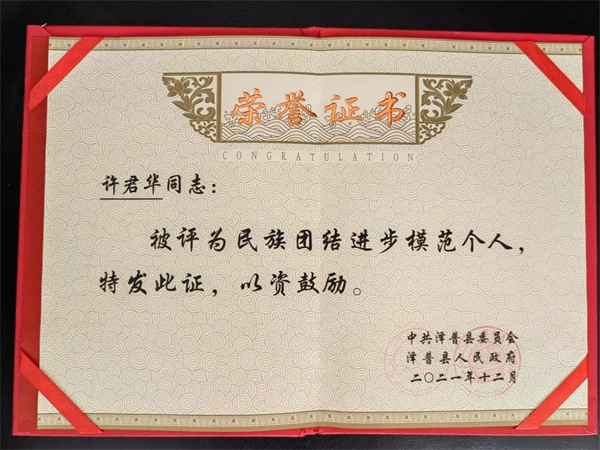 荣誉证书
CONGRATULATION
许君华同志：
被评为民族团结进步模范个人，
特发此证，以资鼓励。
中共泽普县委员会
泽普县人民政府
二〇二一年十二月